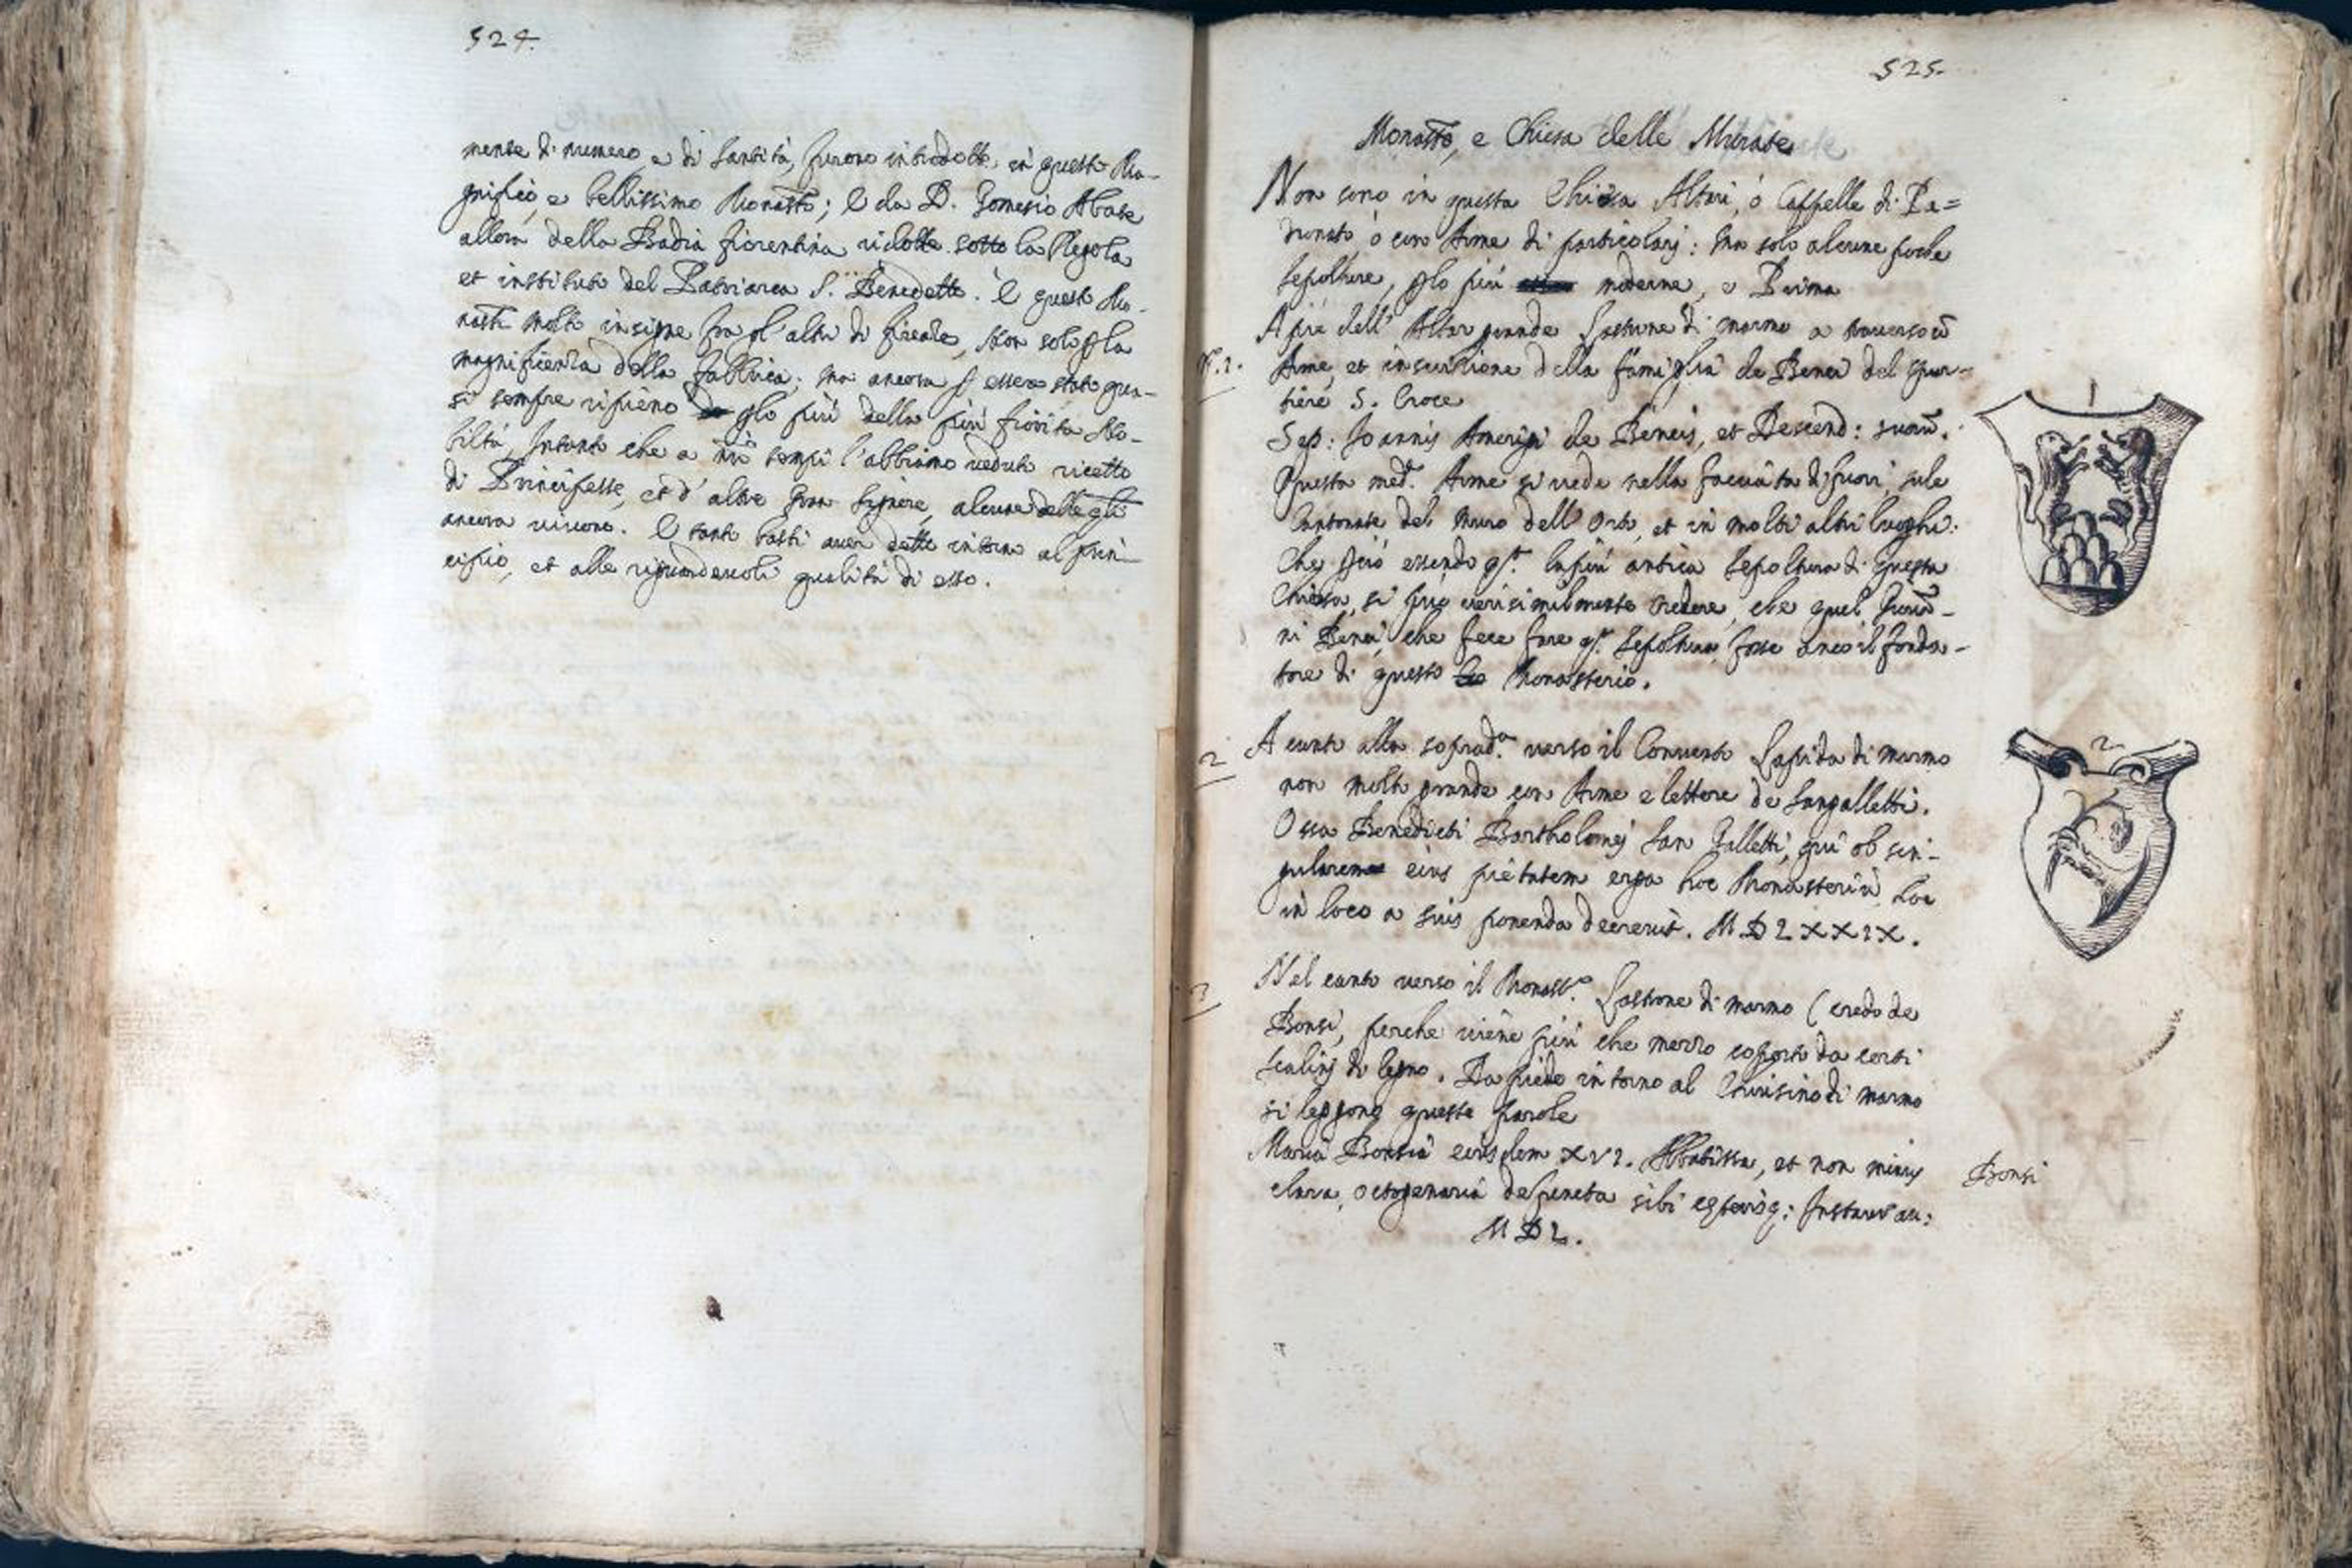 524.
mente di numero, e di santità, furono introdotte in questo Ma-
gnifico, e bellissimo Monastº; E da D. Gomezio Abate
allora della Badia fiorentina ridotte sotto la Regola
et instituto del Patriarca S. Benedetto. È questo Mo-
nastº molto insigne fra gl'altri di firenze, Non solo p la
magnificenza della fabbrica; ma ancora p essere stato qua-
si sempre ripieno plo più della più fiorita No-
biltà, Intanto che a nri tempi l'abbiamo veduto ricetto
di Principesse, et d'altre gran Signore, alcune delle qli
ancora vivono. E tanto basti aver detto intorno al prin
cipio, et alle riguardevoli qualità di esso.
525.
Monastº, e Chiesa delle Murate
Non sono in questa Chiesa Altari, ò Cappelle di Pa=
dronato, ò con Arme di particolarj: Ma solo alcune poche
sepolture, plo più moderne, e Prima
Nº. 1. A piè dell' Altar grande Lastrone di marmo a traverso cō
Arme, et inscritione della famiglia de Benci del Quar-
tiere S. Croce
Sep: Joannis Amerigi de Bencis, et Descend: suorū.
Questa medª. Arme si vede nella facciata di fuori, sule
Cantonate del muro dell' Orto, et in molti altri luoghi:
Che però essendo qstª. la più antica sepoltura di questa
Chiesa, si può verisimilmente credere, che quel Giovā-
ni Benci, che fece fare qstª. sepoltura, fosse anco il fonda-
tore di questo Monasterio.
1
2 A canto alla sopradª. verso il Convento Lapida di marmo
non molto grande con Arme e lettere de Sangalletti.
Ossa Benedicti Bartholomej San Galletti, qui ob sin-
gularem eius pietatem erga hoc Monasteriū hoc
in loco a suis ponenda decrevit. MDLXXIX.
2
3 Nel canto verso il Monastº. Lastrone di marmo (credo de
Bonsi, perche viene più che mezzo coperto da certi
scalinj di legno. Da piede intorno al Chiusino di marmo
si leggono queste parole
Maria Bonsia eiusdem XVI. Abbatissa, et non minus
clara, octogenaria defuncta sibi
MDL.
Bonsi